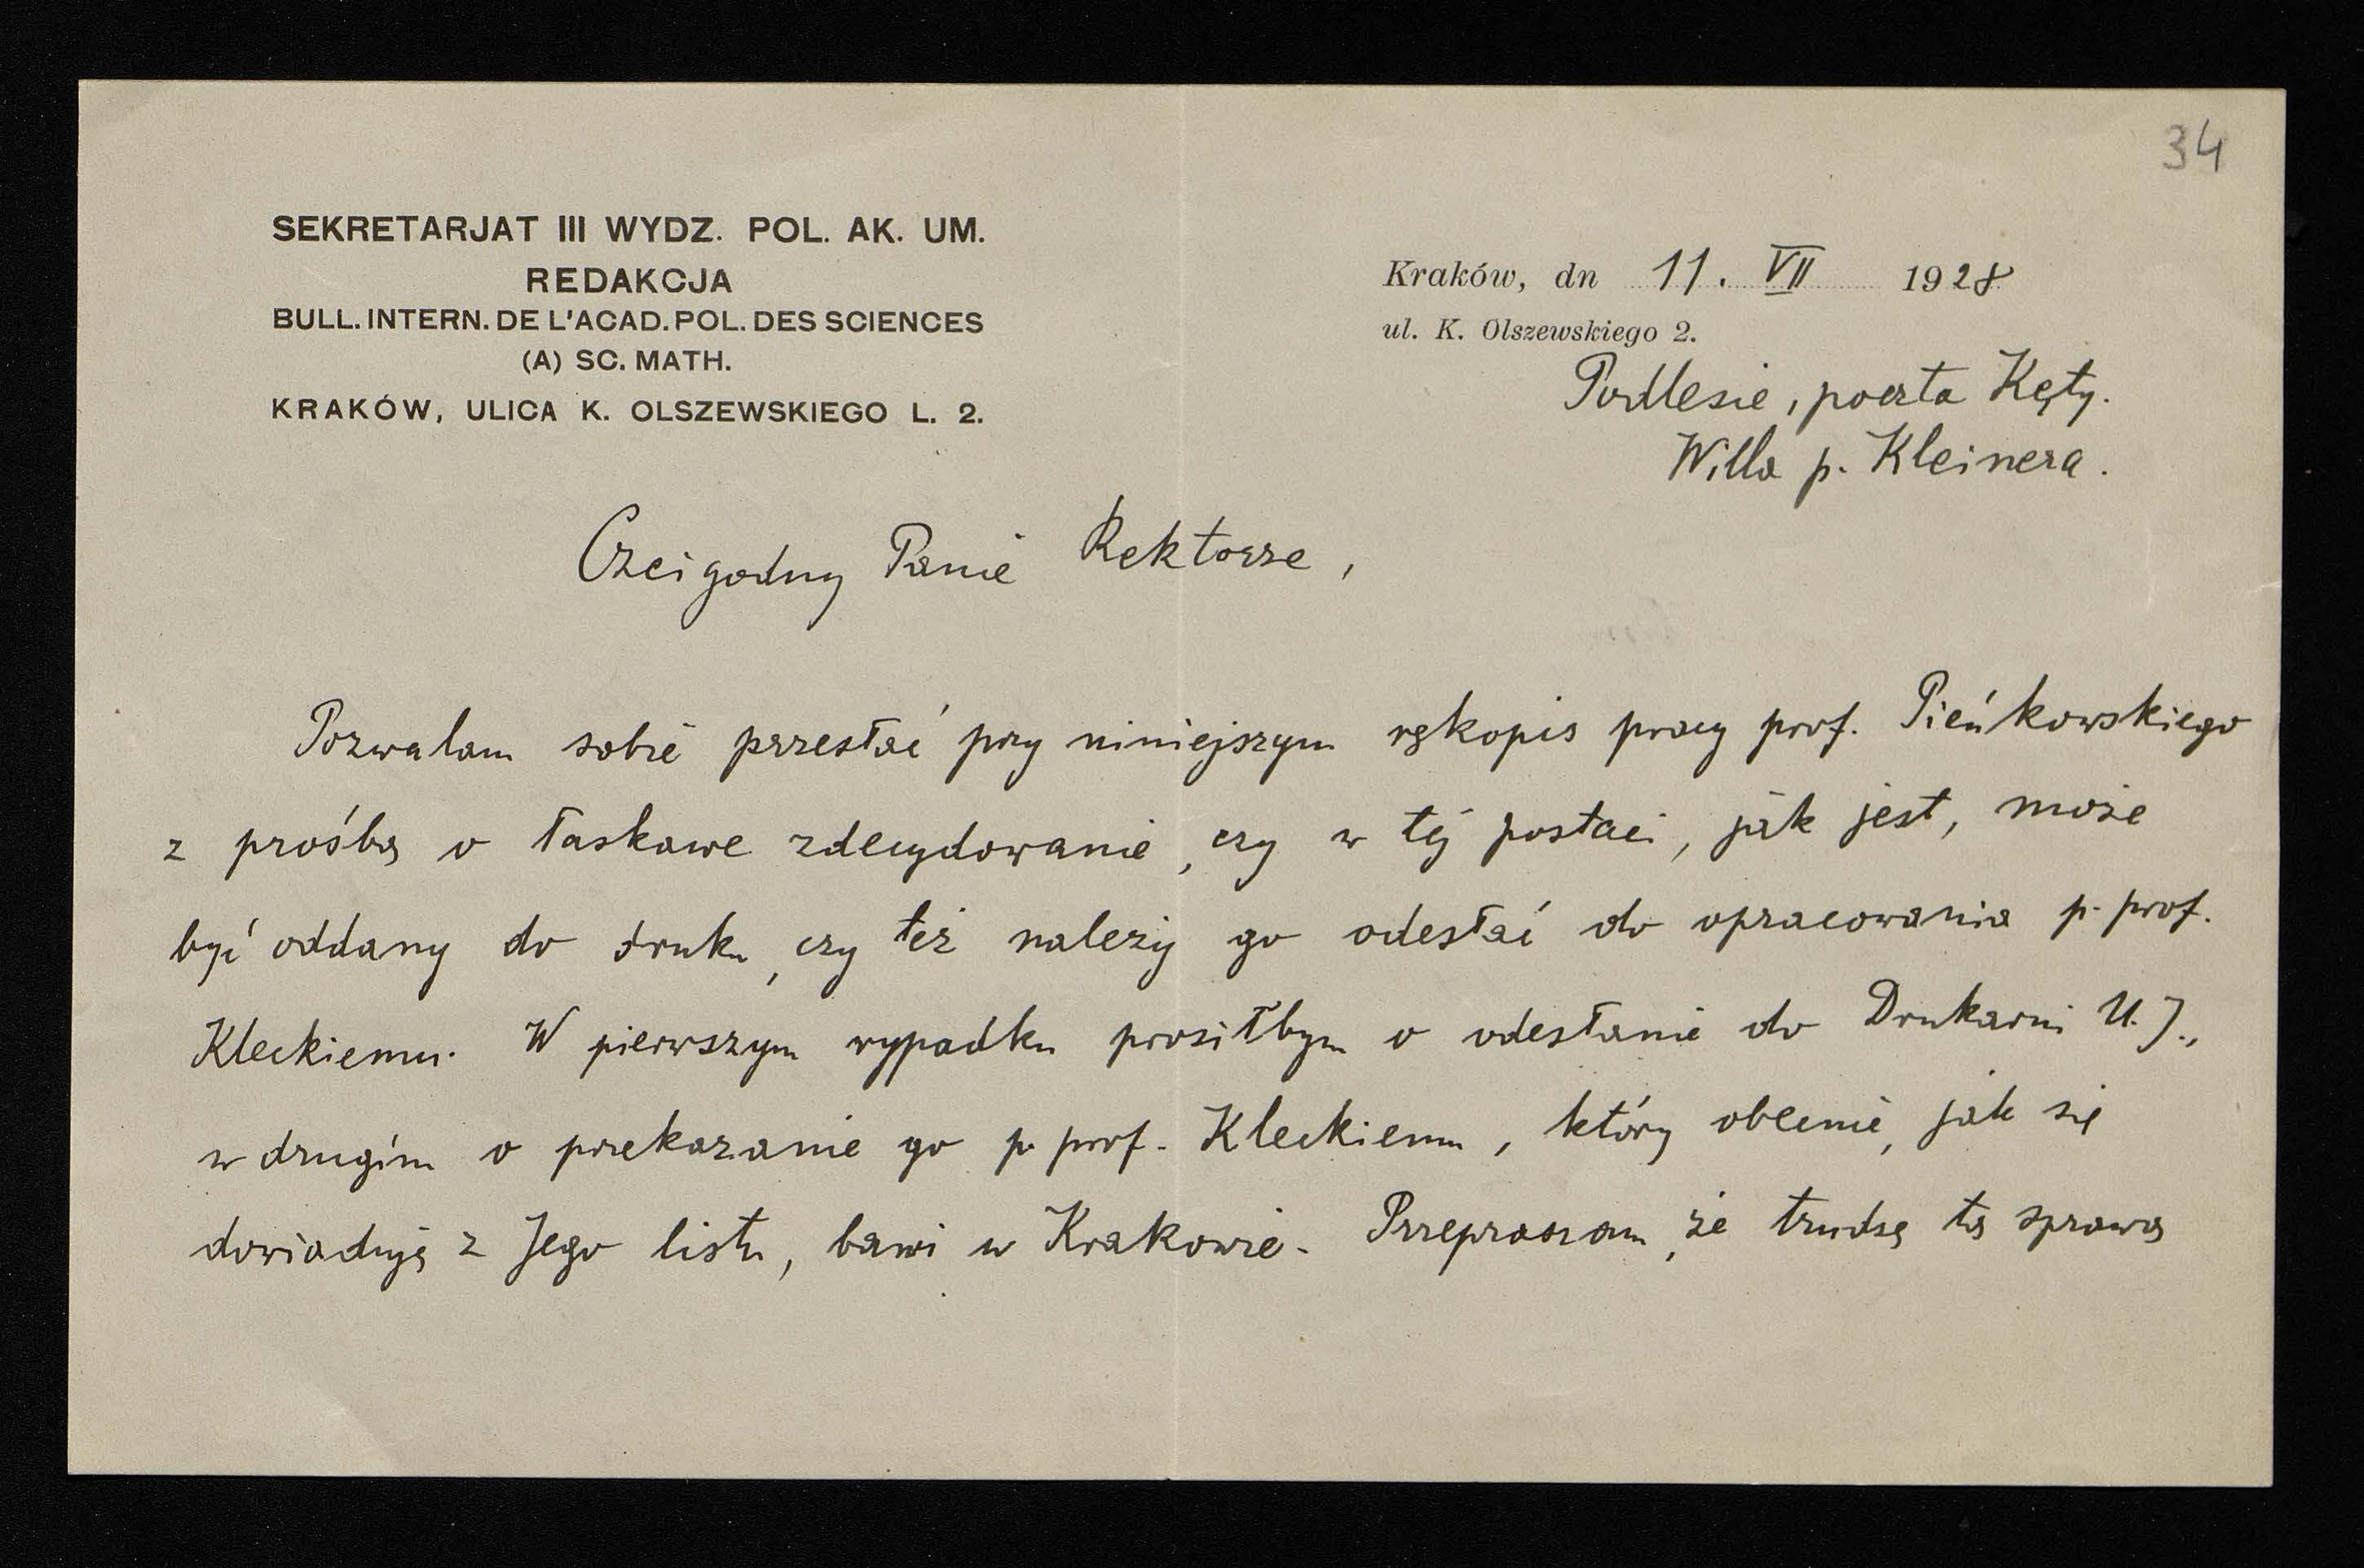 34
SEKRETARJAT III WYDZ. POL. AK. UM.
REDAKCJA
BULL. INTERN. DE L'ACAD. POL. DES SCIENCES
(A) SC. MATH.
KRAKÓW, ULICA K. OLSZEWSKIEGO L. 2.
Kraków, dn 11. VII 1928
ul. K. Olszewskiego 2.
Podlesie, poczta Kęty.
Willa p. Kleinera.
Czcigodny Panie Rektorze,
Pozwalam sobie przesłać przy niniejszym rękopis pracy prof. Pieńkowskiego
z prośbą o łaskawe zdecydowanie, czy w tej postaci, jak jest, może
być oddany do druku, czy też należy go odesłać do opracowania p. prof.
Kleckiemu. W pierwszym wypadku prosiłbym o odesłanie do Drukarni U. J.,
w drugim o przekazanie go p. prof. Kleckiemu, który obecnie, jak się
dowiaduję z Jego listu, bawi w Krakowie. Przepraszam, że trudzę tą sprawą